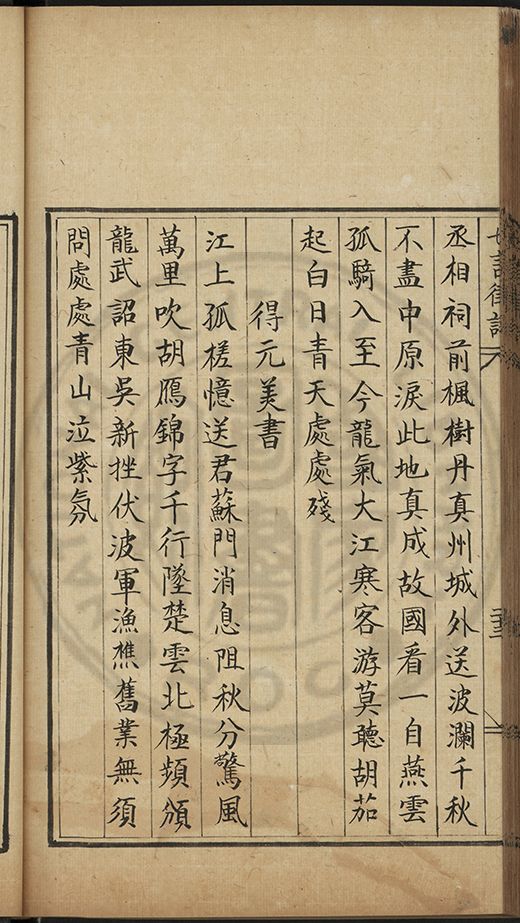 七言律詩
丞相祠前楓樹丹真州城外送波瀾千秋
不盡中原淚此地真成故國看一自燕雲
孤騎入至今龍氣大江寒客游莫聽胡茄
起白日青天處處殘
得元美書
江上孤槎憶送君蘇門消息阻秋分驚風
萬里吹胡鴈錦字千行墜楚雲北極頻頒
龍武詔東吳新挫伏波軍漁樵舊業無須
問處處青山泣紫氛